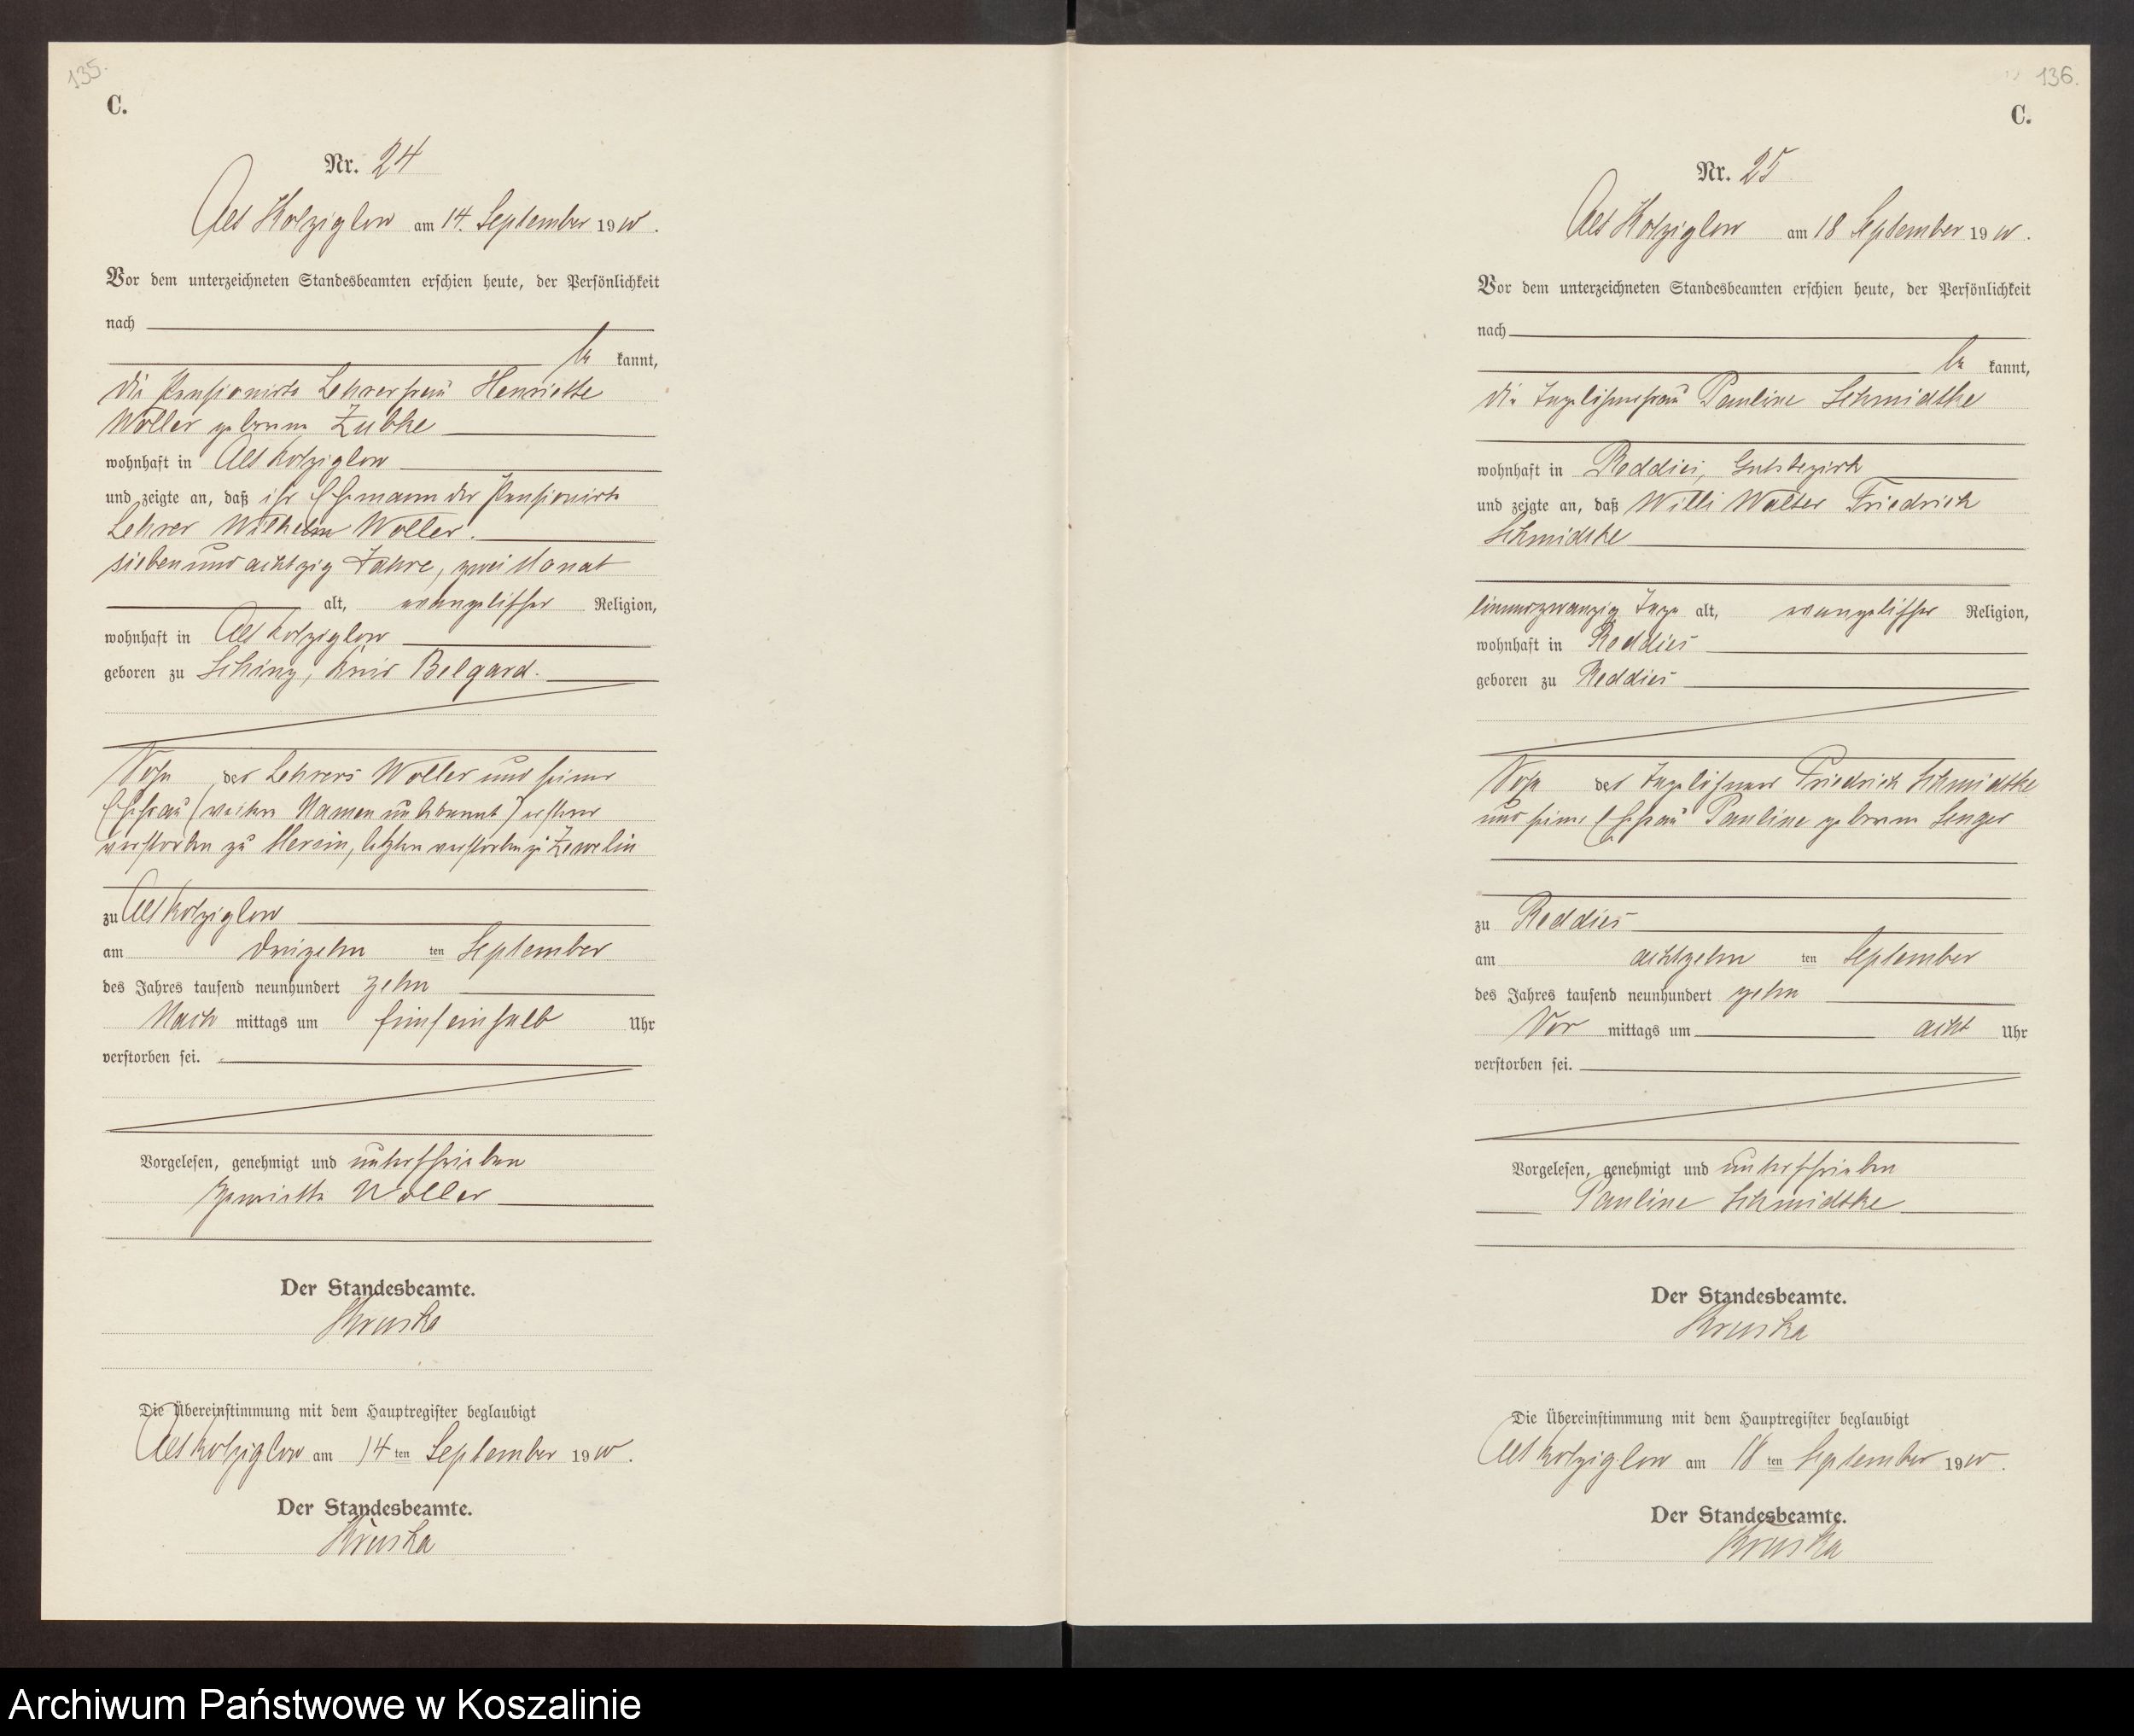 135.
C.
Nr. 24
Alt Kolziglow am 14. September 1910.
Vor dem unterzeichneten Standesbeamten erschien heute, der Persönlichkeit
nach
be kannt,
die Pensionirte Lehrerfrau Henriette
Woller geborene Zubke
wohnhaft in Alt Kolziglow
und zeigte an, daß ihr Ehemann der Pensionirte
Lehrer Wilhelm Woller.
sieben und achtzig Jahre, zwei Monat
alt, evangelischer Religion,
wohnhaft in Alt Kolziglow
geboren zu Schinz, Kreis Belgard.
Sohn des Lehrers Woller und seiner
Ehefrau (weitere Namen unbekannt) ersterer
verstorben zu Mersin, letztere verstorben zu Zewelin
zu Alt Kolziglow
am dreizehn ten September
des Jahres tausend neunhundert zehn
Nach mittags um fünfeinhalb Uhr
verstorben sei.
Vorgelesen, genehmigt und unterschrieben
Henriette Woller
Der Standesbeamte.
Kruska
Die Übereinstimmung mit dem Hauptregister beglaubigt
Alt Kolziglow am 14 ten September 1910.
Der Standesbeamte.
Kruska
136.
C.
Nr. 25
Alt Kolziglow am 18 September 1910.
Vor dem unterzeichneten Standesbeamten erschien heute, der Persönlichkeit
nach
be kannt,
die Tagelöhnerfrau Pauline Schmidtke
wohnhaft in Reddies, Gutsbezirk
und zeigte an, daß Willi Walter Friedrich
Schmidtke
einundzwanzig Tage alt, evangelischer Religion,
wohnhaft in Reddies
geboren zu Reddies
Sohn des Tagelöhners Friedrich Schmidtke
und seiner Ehefrau Pauline geborene Senger
zu Reddies
am achtzehn ten September
des Jahres tausend neunhundert zehn
Vor mittags um acht Uhr
verstorben sei.
Vorgelesen, genehmigt und unterschrieben
Pauline Schmidtke
Der Standesbeamte.
Kruska
Die Übereinstimmung mit dem Hauptregister beglaubigt
Alt Kolziglow am 18 ten September 1910.
Der Standesbeamte.
Kruska
Archiwum Państwowe w Koszalinie